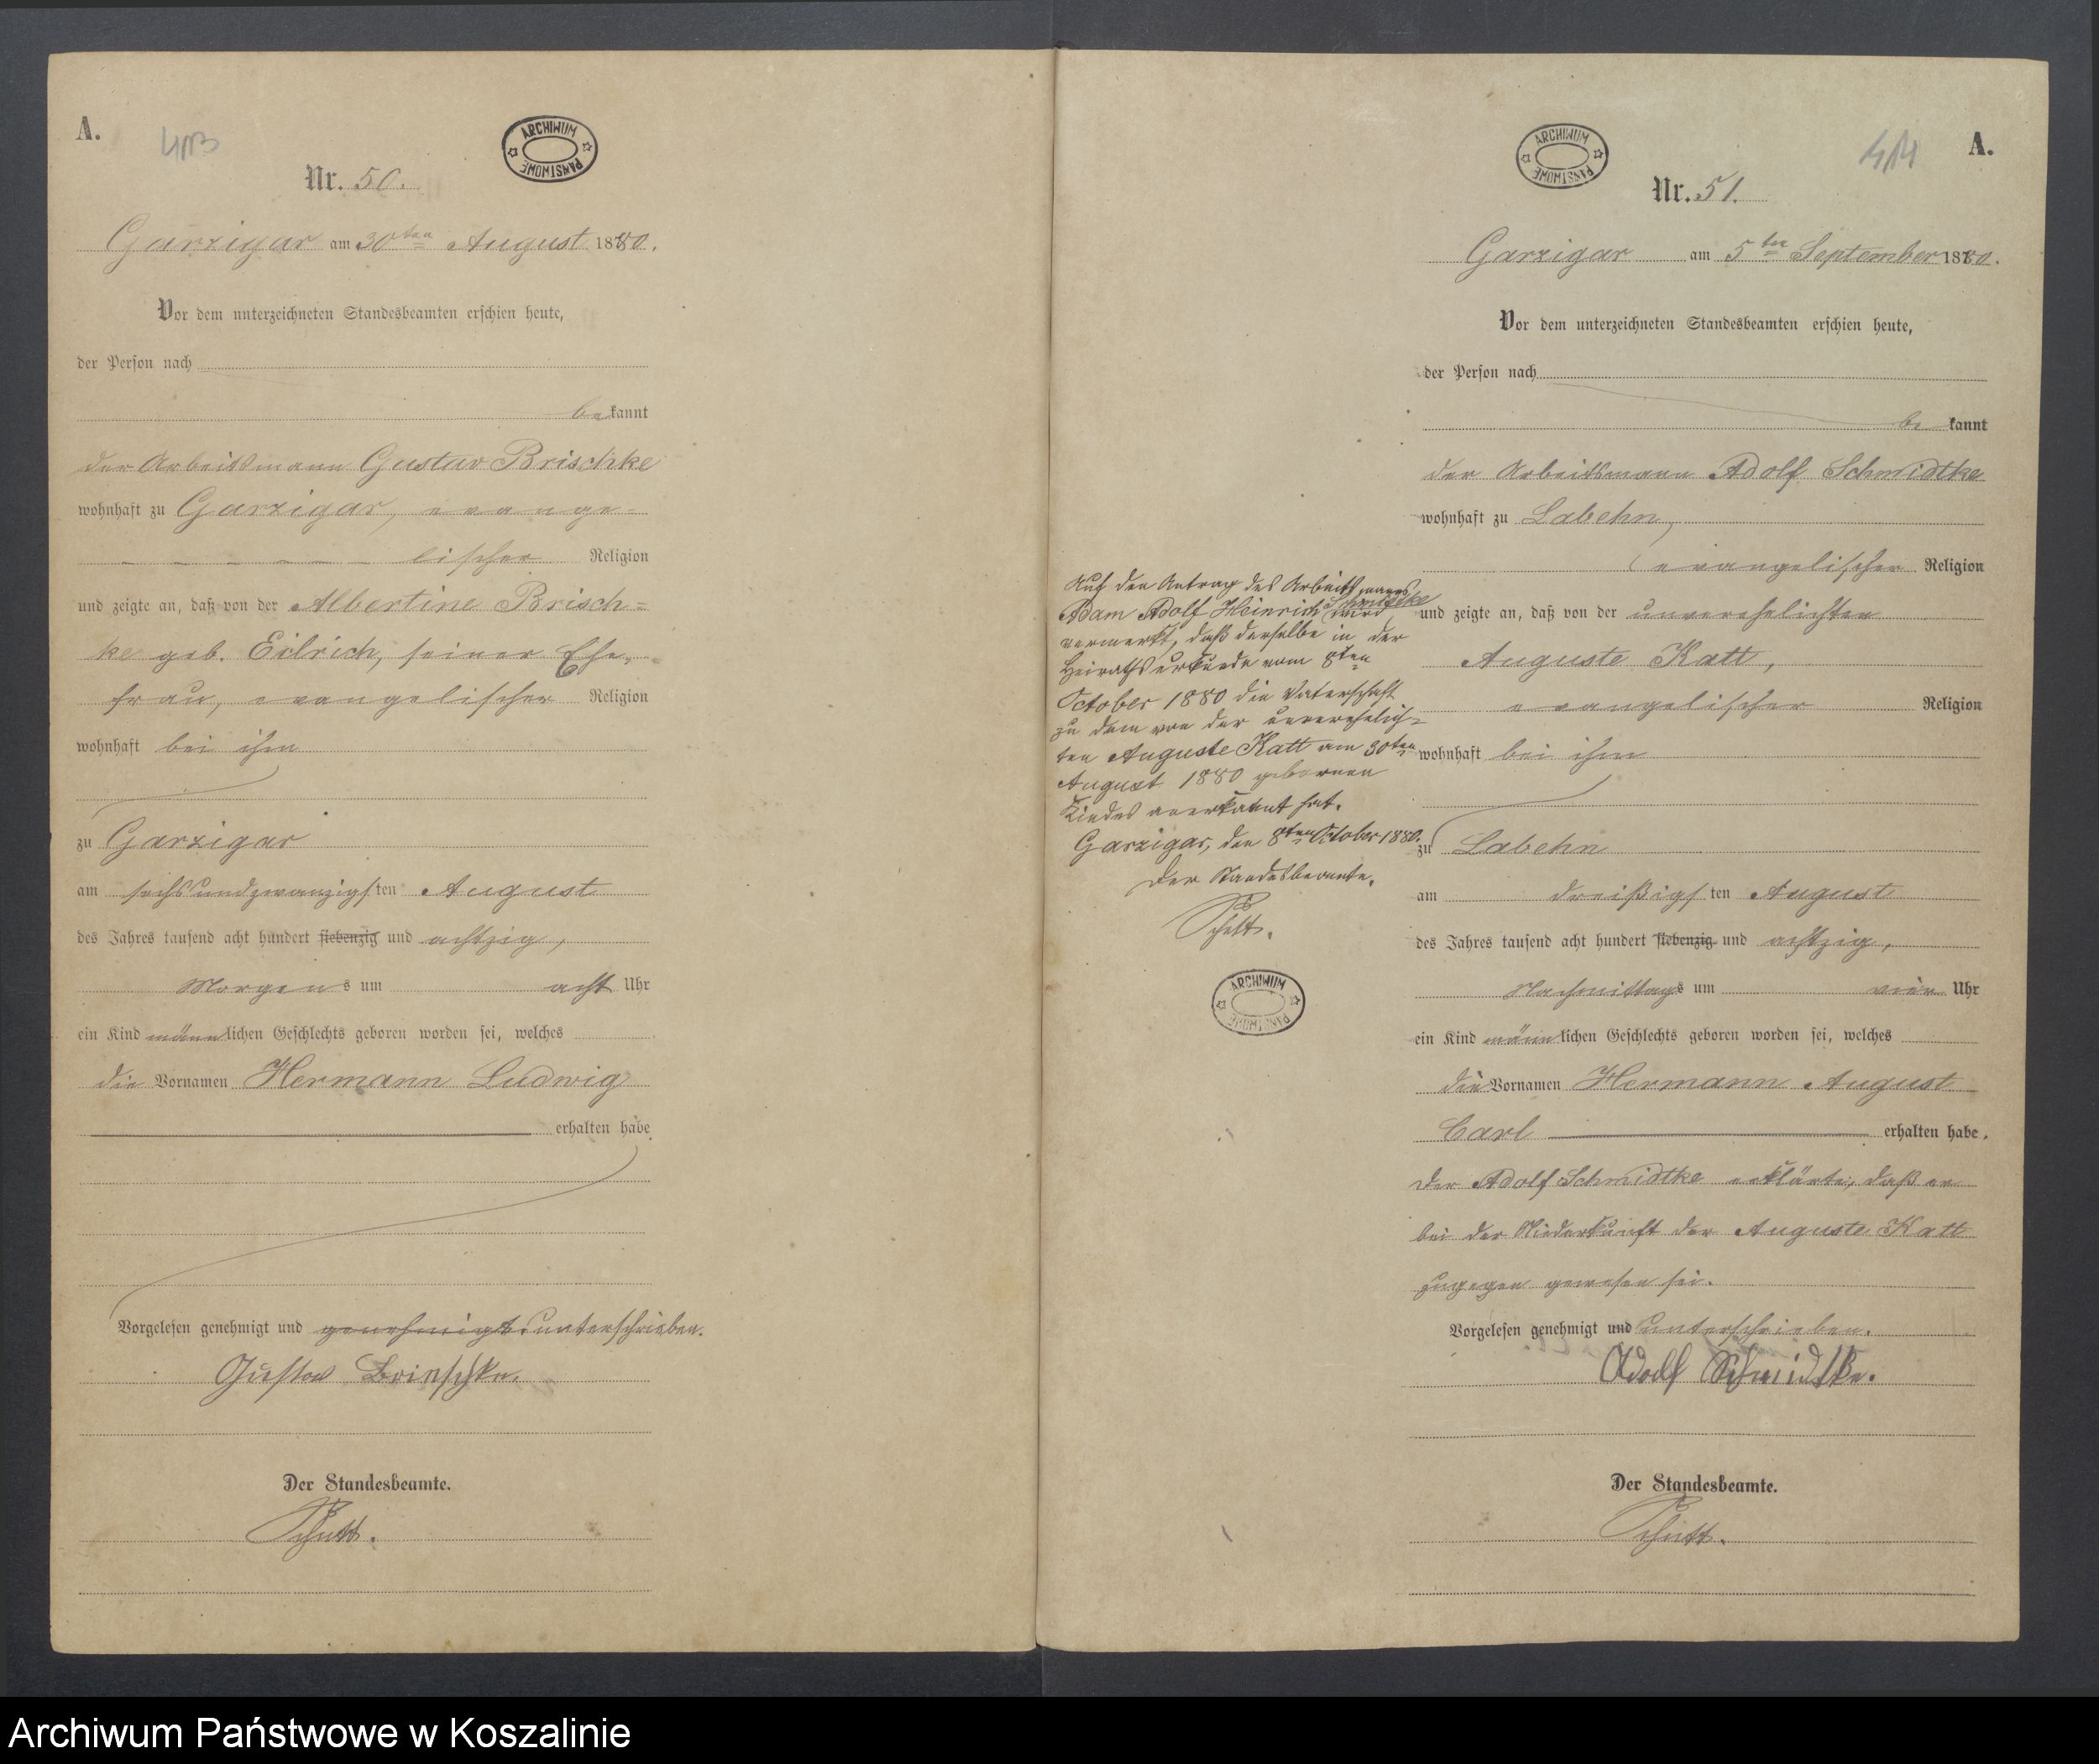 A.
413
ARCHIWUM PAŃSTWOWE
Nr. 50.
Garzigar am 30ten August 1880.
Vor dem unterzeichneten Standesbeamten erschien heute,
der Person nach
bekannt
der Arbeitsmann Gustav Brischke
wohnhaft zu Garzigar, evange=
lischer Religion
und zeigte an, daß von der Albertine Brisch=
ke geb. Eilrich, seiner Ehe=
frau, evangelischer Religion
wohnhaft bei ihm
zu Garzigar
am sechsundzwanzigsten August
des Jahres tausend acht hundert siebenzig und achtzig,
Morgens um acht Uhr
ein Kind männlichen Geschlechts geboren worden sei, welches
die Vornamen Hermann Ludwig
erhalten habe
Vorgelesen genehmigt und genehmigt unterschrieben.
Gustav Brischke.
Der Standesbeamte.
Schütt.
414
A.
ARCHIWUM PAŃSTWOWE
Nr. 51.
Garzigar am 5ten September 1880.
Vor dem unterzeichneten Standesbeamten erschien heute,
der Person nach
bekannt
der Arbeitsmann Adolf Schmidtke
wohnhaft zu Labehn,
evangelischer Religion
und zeigte an, daß von der unverehelichten
Auguste Katt,
evangelischer Religion
wohnhaft bei ihm
zu Labehn
am dreißigsten August
des Jahres tausend acht hundert siebenzig und achtzig,
Nachmittags um vier Uhr
ein Kind männlichen Geschlechts geboren worden sei, welches
die Vornamen Hermann August
Carl erhalten habe.
Der Adolf Schmidtke erklärte, daß er
bei der Niederkunft der Auguste Katt
zugegen gewesen sei.
Vorgelesen genehmigt und unterschrieben.
Adolf Schmidtke.
Der Standesbeamte.
Schütt.
Auf den Antrag des Arbeitsmanns
Adam Adolf Heinrich Schmidtke wird
vermerkt, daß derselbe in der
Heirathsurkunde vom 8ten
October 1880 die Vaterschaft
zu dem von der unverehelich=
ten Auguste Katt am 30ten
August 1880 geborenen
Kindes anerkannt hat.
Garzigar, den 8ten October 1880.
Der Standesbeamte.
Schütt.
ARCHIWUM PAŃSTWOWE
Archiwum Państwowe w Koszalinie